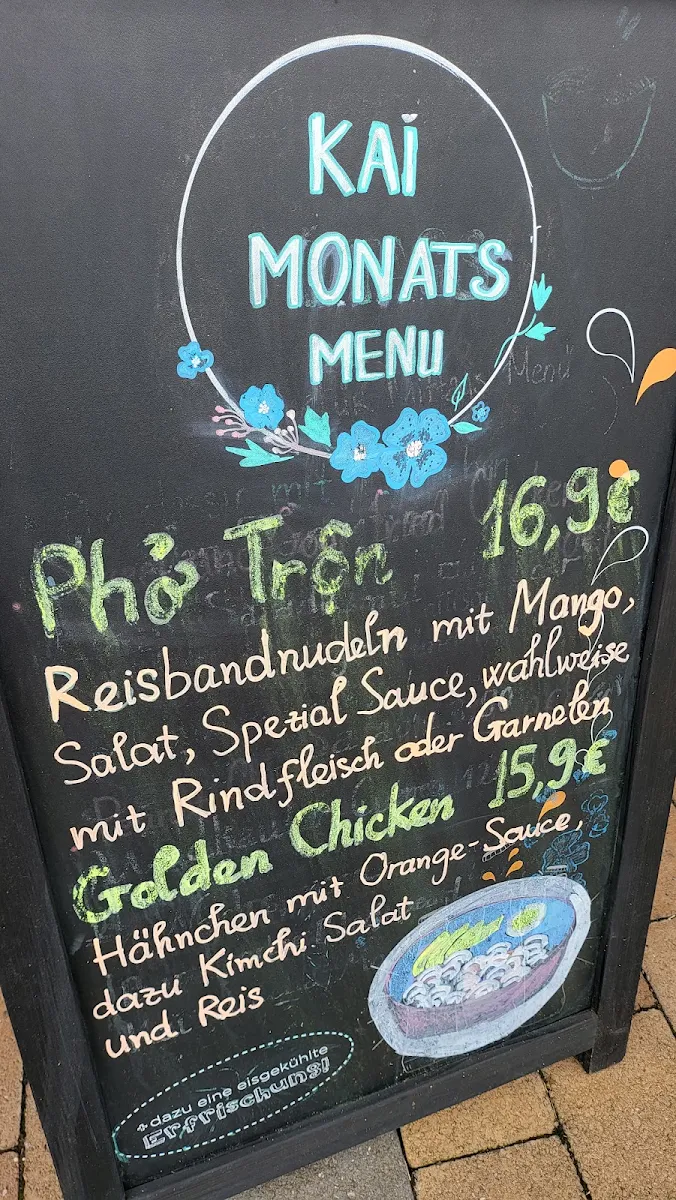 KAI
MONATS
MENU
Phở Trộn 16,9€
Reisbandnudeln mit Mango,
Salat, Spezial Sauce, wahlweise
mit Rindfleisch oder Garnelen
Golden Chicken 15,9€
Hähnchen mit Orange-Sauce,
dazu Kimchi Salat
und Reis
+dazu eine eisgekühlte
Erfrischung!